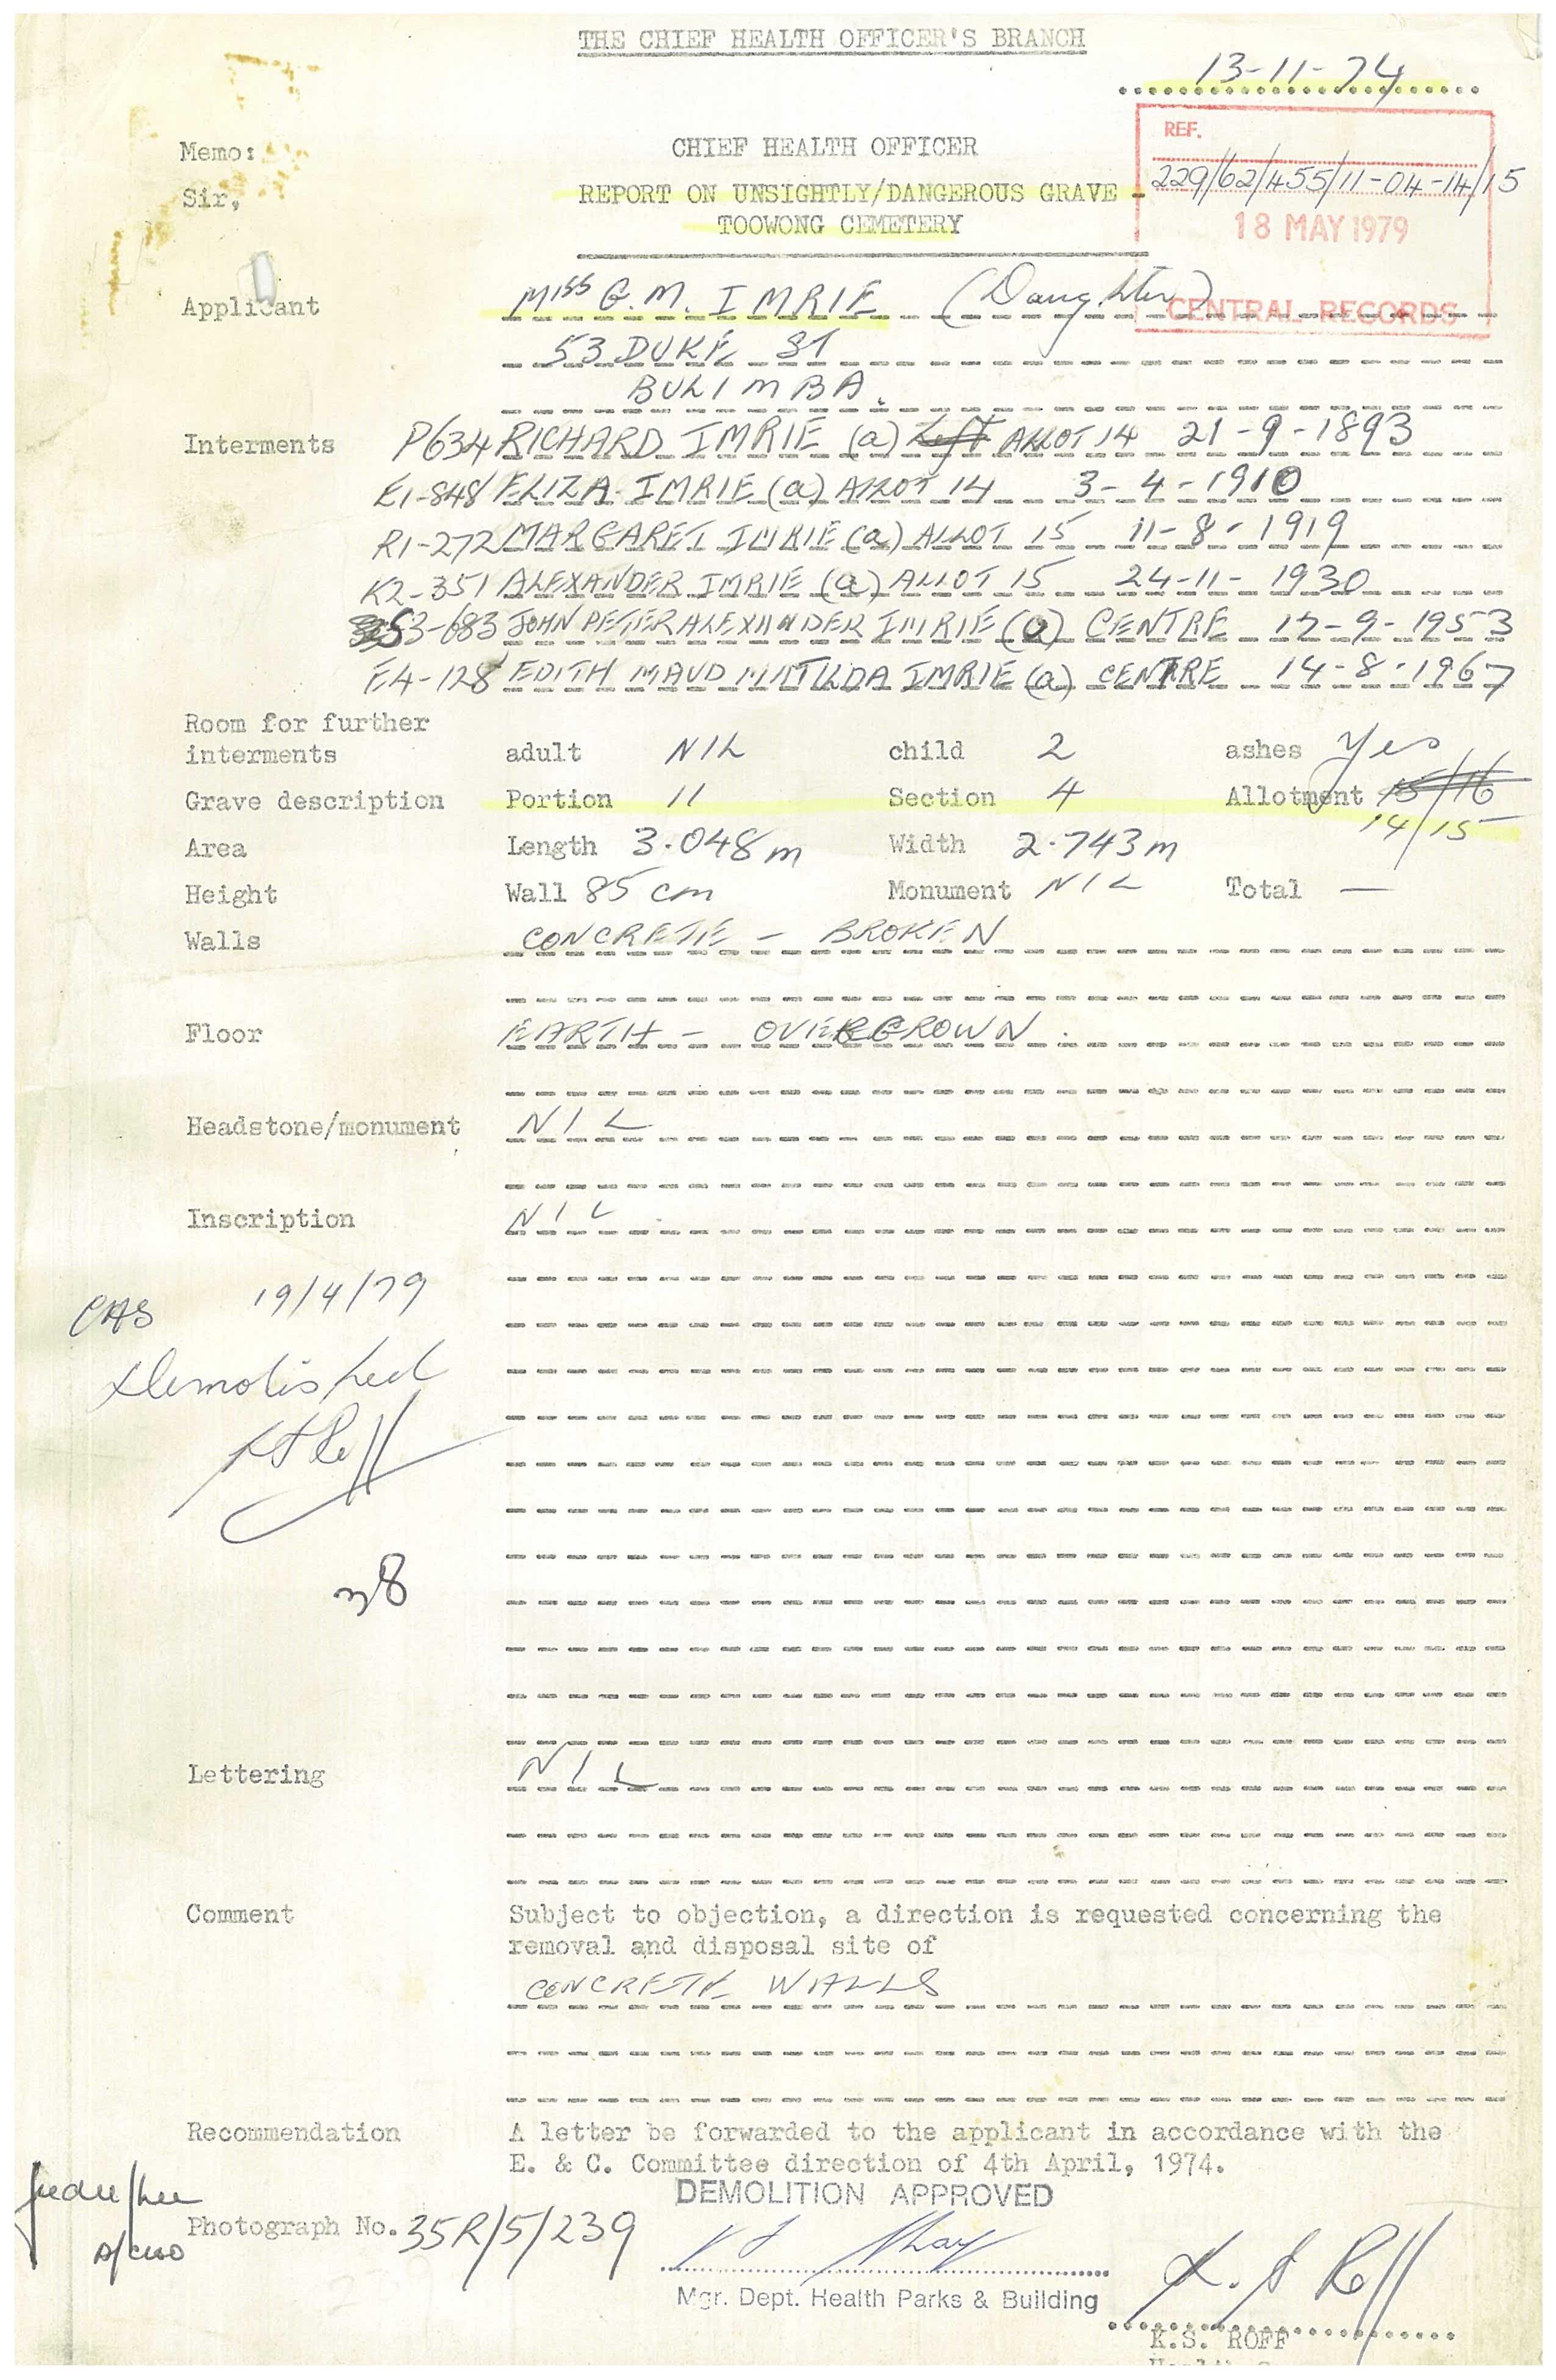 THE CHIEF HEALTH OFFICER'S BRANCH
13-11-74
REF.
229/62/455/11-04-14/15
18 MAY 1979
CENTRAL RECORDS
Memo: CHIEF HEALTH OFFICER
Sir, REPORT ON UNSIGHTLY/DANGEROUS GRAVE -
TOOWONG CEMETERY
Applicant Miss G.M. IMRIE (Daughter)
53 DUKE ST
BULIMBA.
Interments P634 RICHARD IMRIE (a) Left ALLOT 14 21-9-1893
E1-848 ELIZA IMRIE (a) ALLOT 14 3-4-1910
R1-272 MARGARET IMRIE (a) ALLOT 15 11-8-1919
K2-351 ALEXANDER IMRIE (a) ALLOT 15 24-11-1930
S3-683 JOHN PETER ALEXANDER IMRIE (a) CENTRE 17-9-1953
F4-128 EDITH MAUD MATILDA IMRIE (a) CENTRE 14-8-1967
Room for further
interments adult NIL child 2 ashes Yes
Grave description Portion 11 Section 4 Allotment 15/16
14/15
Area Length 3.048m Width 2.743m
Height Wall 85 cm Monument NIL Total —
Walls CONCRETE - BROKEN
Floor EARTH - OVERGROWN.
Headstone/monument NIL
Inscription NIL.
CHS 19/4/79
Demolished
KSRoff
38
Lettering NIL
Comment Subject to objection, a direction is requested concerning the
removal and disposal site of
CONCRETE WALLS
Recommendation A letter be forwarded to the applicant in accordance with the
E. & C. Committee direction of 4th April, 1974.
DEMOLITION APPROVED
A/CHO
Photograph No. 35R/5/239
Mgr. Dept. Health Parks & Building
K. S Roff
K.S. ROFF